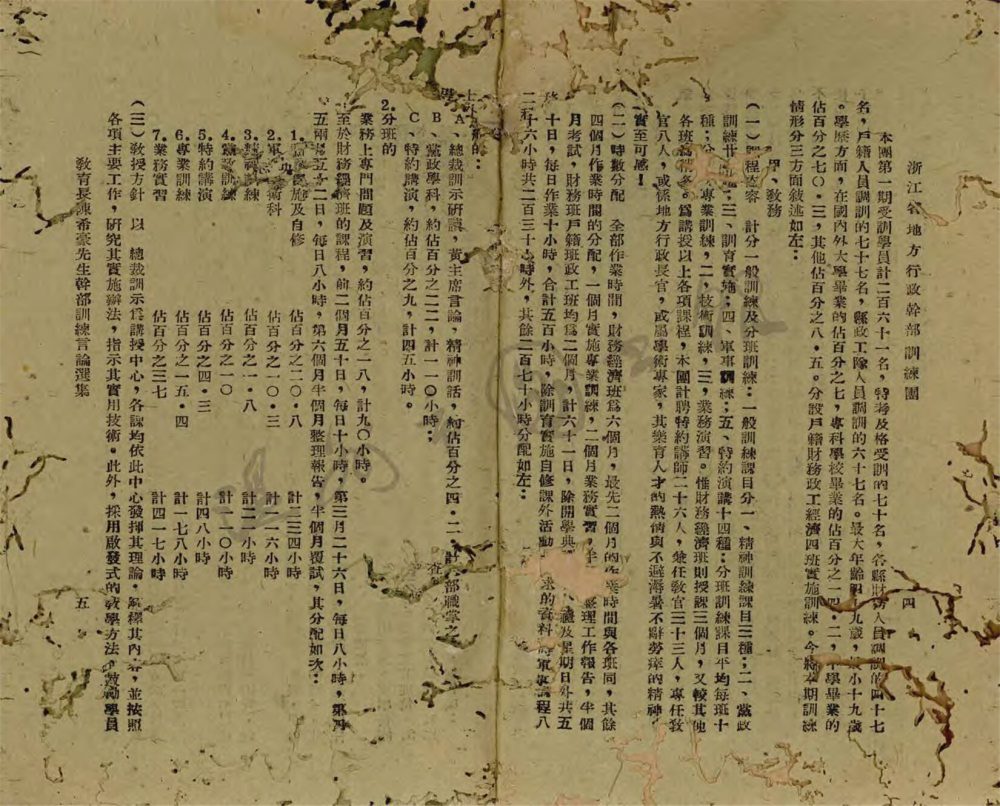 浙江省地方行政幹部訓練團
四
本團第一期受訓學員計二百六十一名，特考及格受訓的七十名，各縣財務人員調訓的四十七
名，戶籍人員調訓的七十七名，縣政工隊人員調訓的六十七名。最大年齡四九歲，最小十九歲
。學歷方面，在國內外大學畢業的佔百分之七，專科學校畢業的佔百分之一四．二，中學畢業的
佔百分之七〇．三，其他佔百分之八．五。分設戶籍財務政工經濟四班實施訓練。今將本期訓練
情形分三方面敘述如左：
甲、教務
（一）課程內容　計分一般訓練及分班訓練：一般訓練課目分一、精神訓練課目三種；二、黨政
訓練廿種；三、訓育實施；四、軍事訓練；五、特約演講十四種：分班訓練課目平均每班十
種；分一，專業訓練，二，技術訓練，三，業務演習。惟財務經濟班則授課三個月，又較其他
各班為多。為講授以上各項課程，本團計聘特約講師二十六人，兼任教官三十三人，專任教
官八人，或係地方行政長官，或屬學術專家，其樂育人才的熱情與不避溽暑不辭勞瘁的精神
實至可感！
（二）時數分配　全部作業時間，財務經濟班為六個月，最先二個月的作業時間與各班同，其餘
四個月作業時間的分配，一個月實施專業訓練，二個月業務實習，半　整理工作報告，半個
月考試，財務班戶籍班政工班均為二個月，計六十一日，除開學典　禮及星期日外共五
十日，每日作業十小時，合計五百小時，除訓育實施自修課外活動　的資料　軍事課程八
二百三十小時外，其餘二百七十小時分配如左：
的：
A、總裁訓示研讀，黃主席言論，精神訓話，約佔百分之四．二
部職掌之
B、黨政學科，約佔百分之二二，計一一〇小時；
C、特約講演，約佔百分之九，計四五小時。
2.分班的
業務上專門問題及演習，約佔百分之一八，計九〇小時。
至於財務經濟班的課程，前二個月五十日，每日十小時，第三月二十六日，每日八小時，第四
五兩月五十二日，每日八小時，第六個月半個月整理報告，半個月覆試，其分配如次：
1.　施及自修　佔百分之二〇．八　計二三四小時
2.軍事術科　佔百分之一〇．三　計一一六小時
3.精神訓練　佔百分之一．八　計二一小時
4.黨政訓練　佔百分之一〇　計一一〇小時
5.特約講演　佔百分之四．三　計四八小時
6.專業訓練　佔百分之一五．四　計一七八小時
7.業務實習　佔百分之三七　計四一七小時
（三）教授方針　以　總裁訓示為講授中心，各課均依此中心發揮其理論，解釋其內容，並按照
各項主要工作，研究其實施辦法，指示其實用技術。此外，採用啟發式的教學方法，鼓勵學員
教育長陳希豪先生幹部訓練言論選集
五